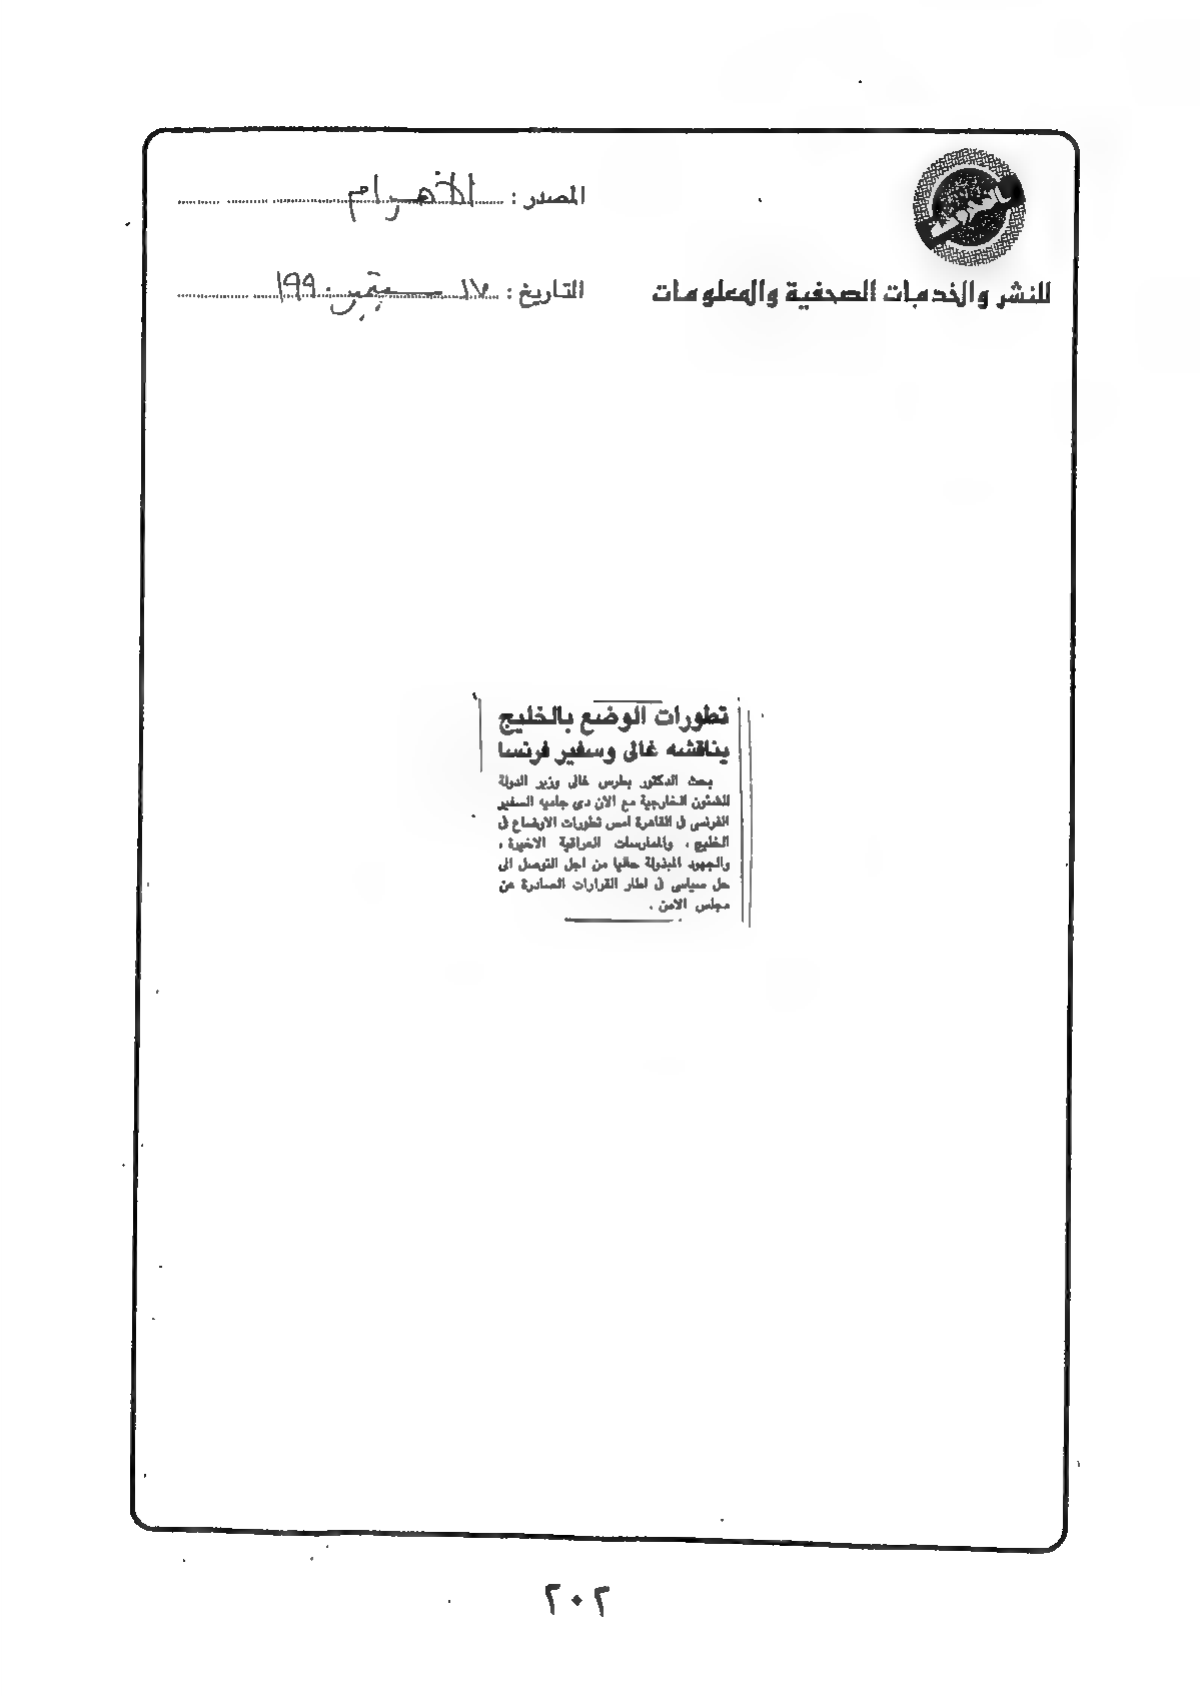 المصدر : الأهرام
للنشر والخدمات الصحفية والمعلومات
التاريخ : ١٧ سبتمبر ١٩٩٠
تطورات الوضع بالخليج
يناقشه غالى وسفير فرنسا
بحث الدكتور بطرس غالى وزير الدولة
للشئون الخارجية مع الان دى جاميه السفير
الفرنسى فى القاهرة امس تطورات الاوضاع فى
الخليج ، والممارسات العراقية الاخيرة ،
والجهود المبذولة حاليا من اجل التوصل الى
حل سياسى فى اطار القرارات الصادرة عن
مجلس الامن .
٢٠٢